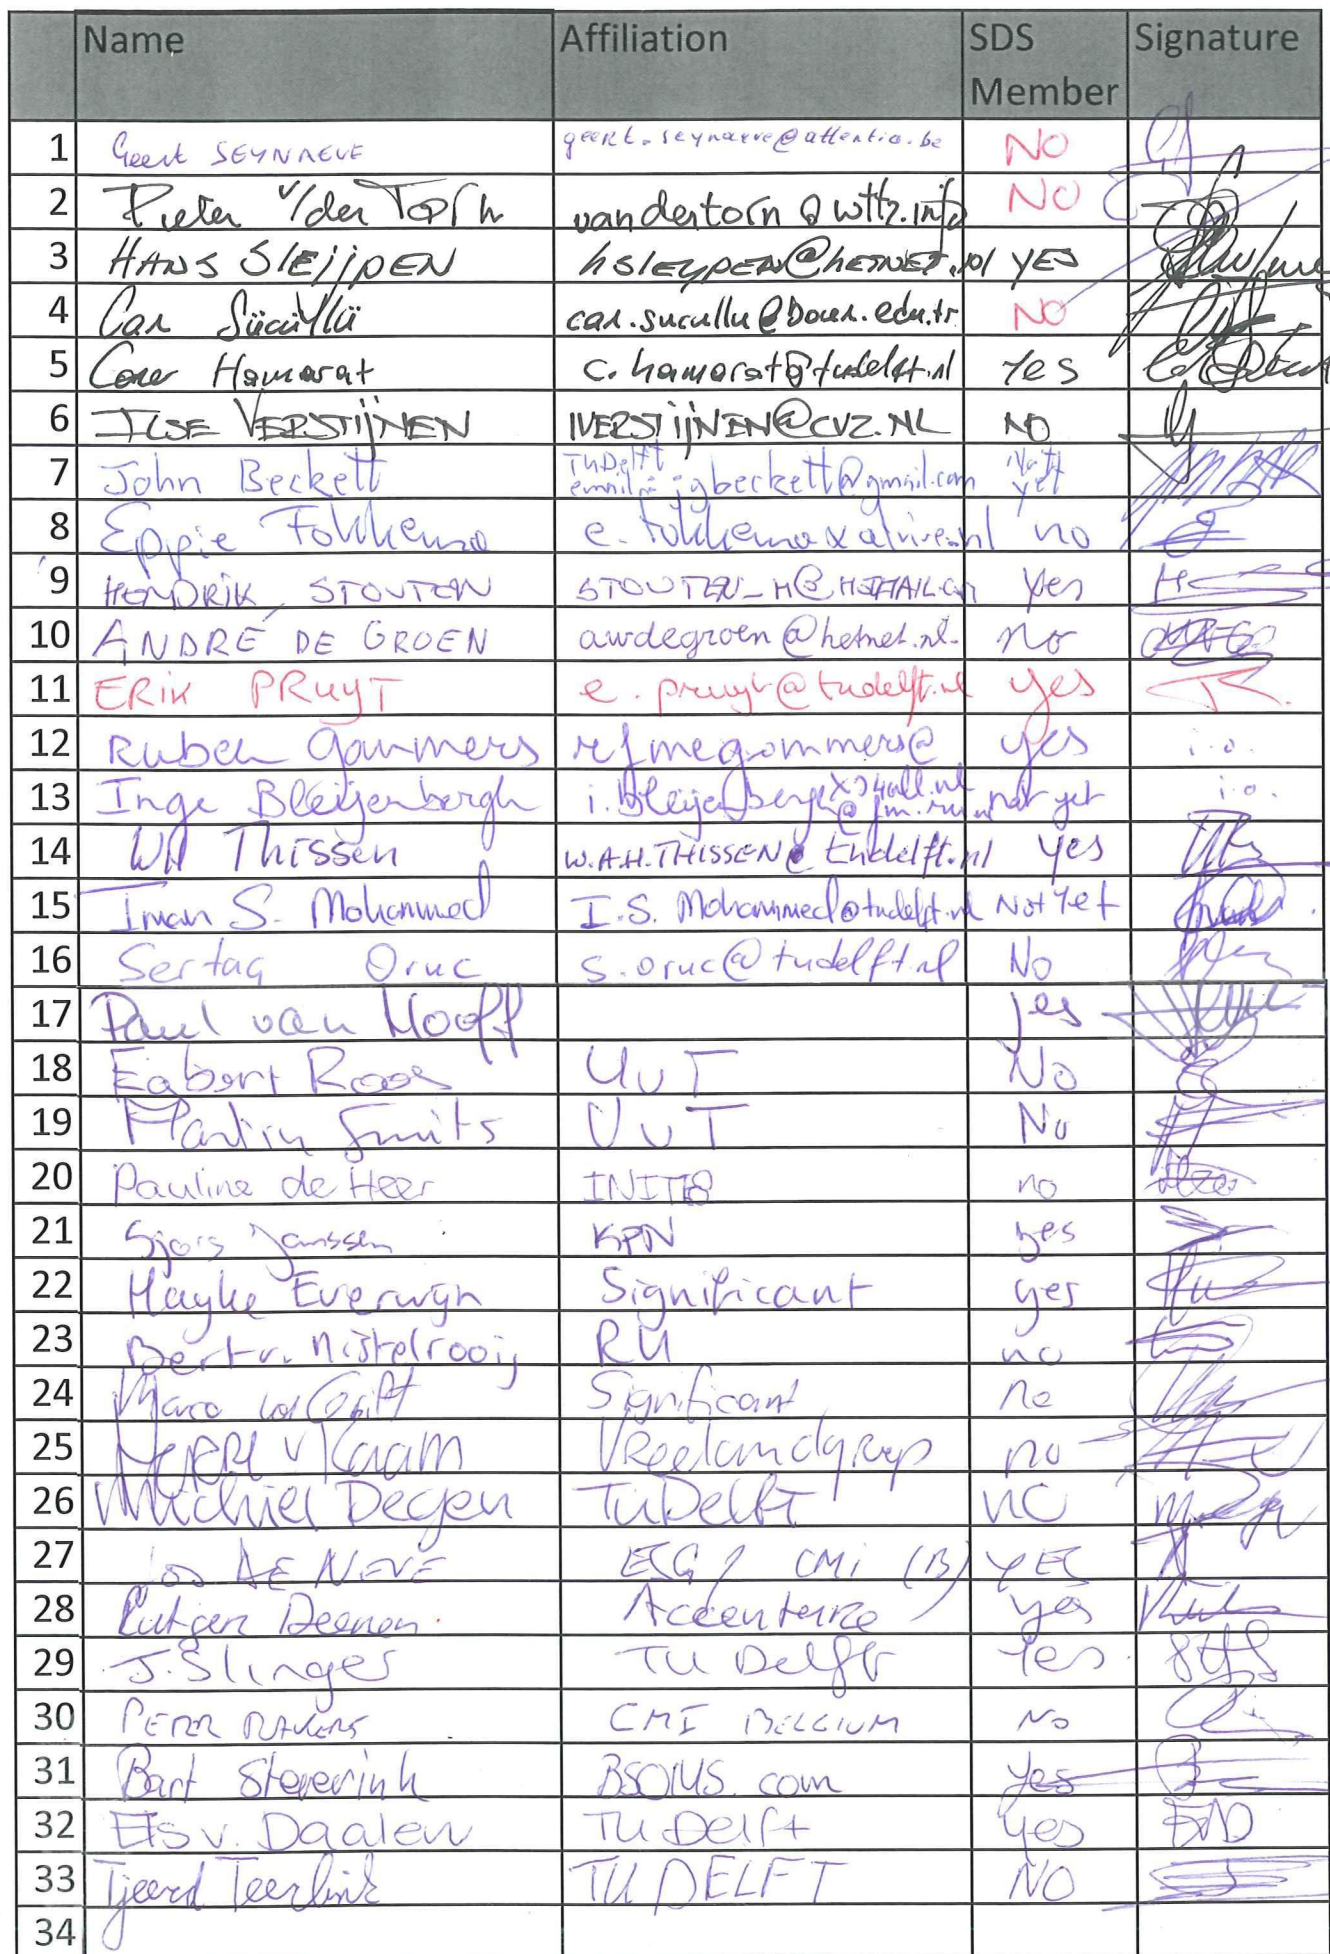 Name Affiliation SDS Member Signature
1 Geert SEYNAEVE geert.seynaeve@attentia.be NO
2 Pieter v/der Torn vandertorn@wttz.info NO
3 HANS SLEIJPEN hsleypen@hetnet.nl YES
4 Can Sücüllü can.sucullu@boun.edu.tr NO
5 Caner Hamarat c.hamarat@tudelft.nl Yes
6 ILSE VERSTIJNEN IVERSTIJNEN@CVZ.NL NO
7 John Beckett TUDelft email: jgbeckett@gmail.com Not yet
8 Eppie Fokkema no
9 HENDRIK STOUTEN STOUTEN_H@HOTMAIL.com Yes
10 ANDRÉ DE GROEN awdegroen@hetnet.nl no
11 ERIK PRUYT e.pruyt@tudelft.nl yes
12 Ruben Gommers rfmegommers@ yes i.o.
xs4all.nl
13 Inge Bleijenbergh i.bleijenbergh not yet i.o.
@fm.ru.nl
14 Wil Thissen W.A.H.THISSEN@tudelft.nl yes
15 Iman S. Mohammed I.S.Mohammed@tudelft.nl Not Yet
16 Sertaq Oruc s.oruc@tudelft.nl No
17 Paul van Hooff yes
18 Egbert Roos UvT No
19 Martin Smits UvT No
20 Pauline de Heer INIT8 no
21 Sjors Janssen KPN yes
22 Hayke Everwijn Significant yes
23 Bert v. Nistelrooij RU no
24 Marco Significant no
25 v Kaam Vreelandgroep no
26 Michiel Degen TUDelft no
27 DE NEVE CMI (B) YES
28 Rutger Deenen Accenture yes
29 J. Slinger TU Delft Yes
30 PETER CMI BELGIUM No
31 Bart Steverink BSOMS.com Yes
32 Els v. Daalen TU Delft Yes EvD
33 Tjeerd Teerlink TU DELFT NO
34